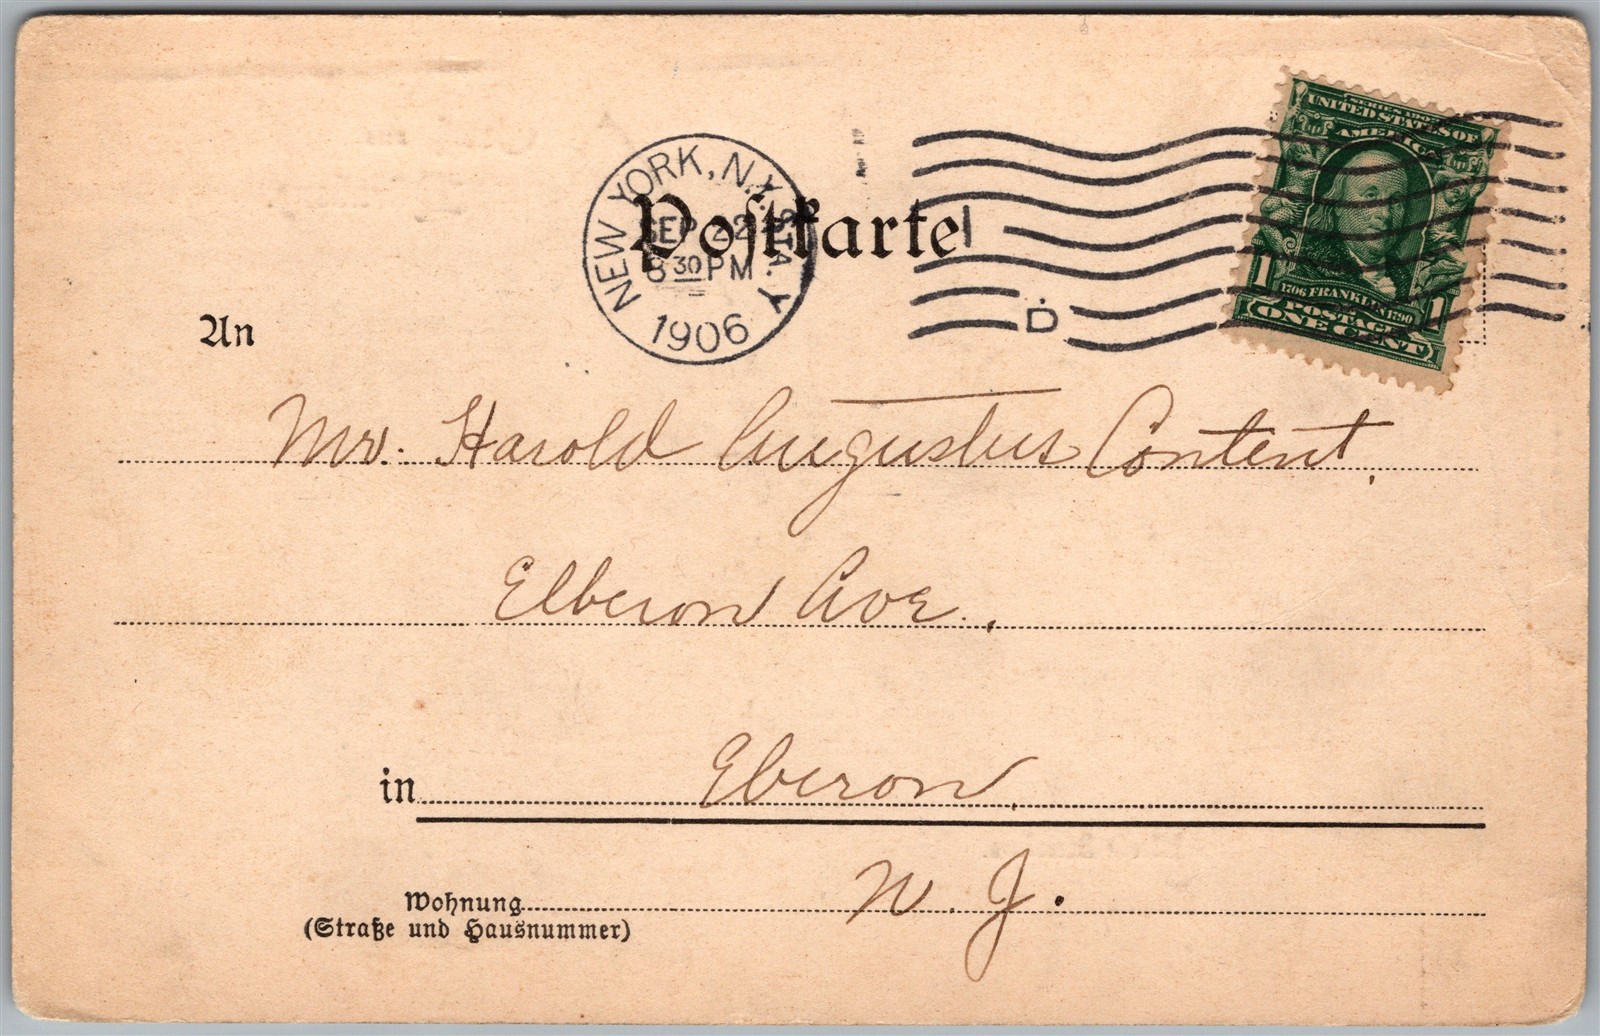 Postkarte
NEW YORK, N.Y. STA. Y
SEP 22
8 30 PM
1906
1
D
SERIES 1902
UNITED STATES OF
AMERICA
1706 FRANKLIN 1790
1 1
POSTAGE
ONE CENT
An
Mr. Harold Augustus Content,
Elberon Ave.,
in Eberon,
N. J.
Wohnung
(Straße und Hausnummer)